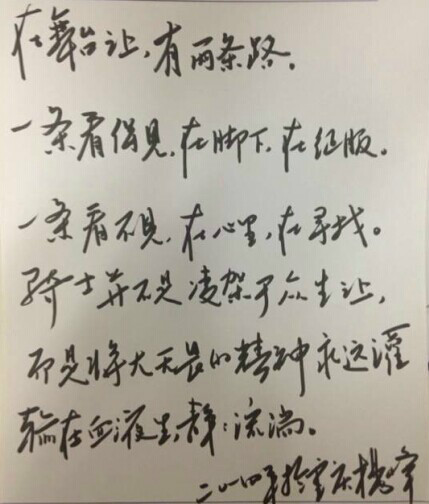 在舞台上,有两条路。
一条看得见,在脚下,在征服。
一条看不见,在心里,在寻找。
骑士并不是凌架于众生上,
而是将大无畏的精神永远灌
输在血液里,静:流淌。
二〇一四年于重庆杨